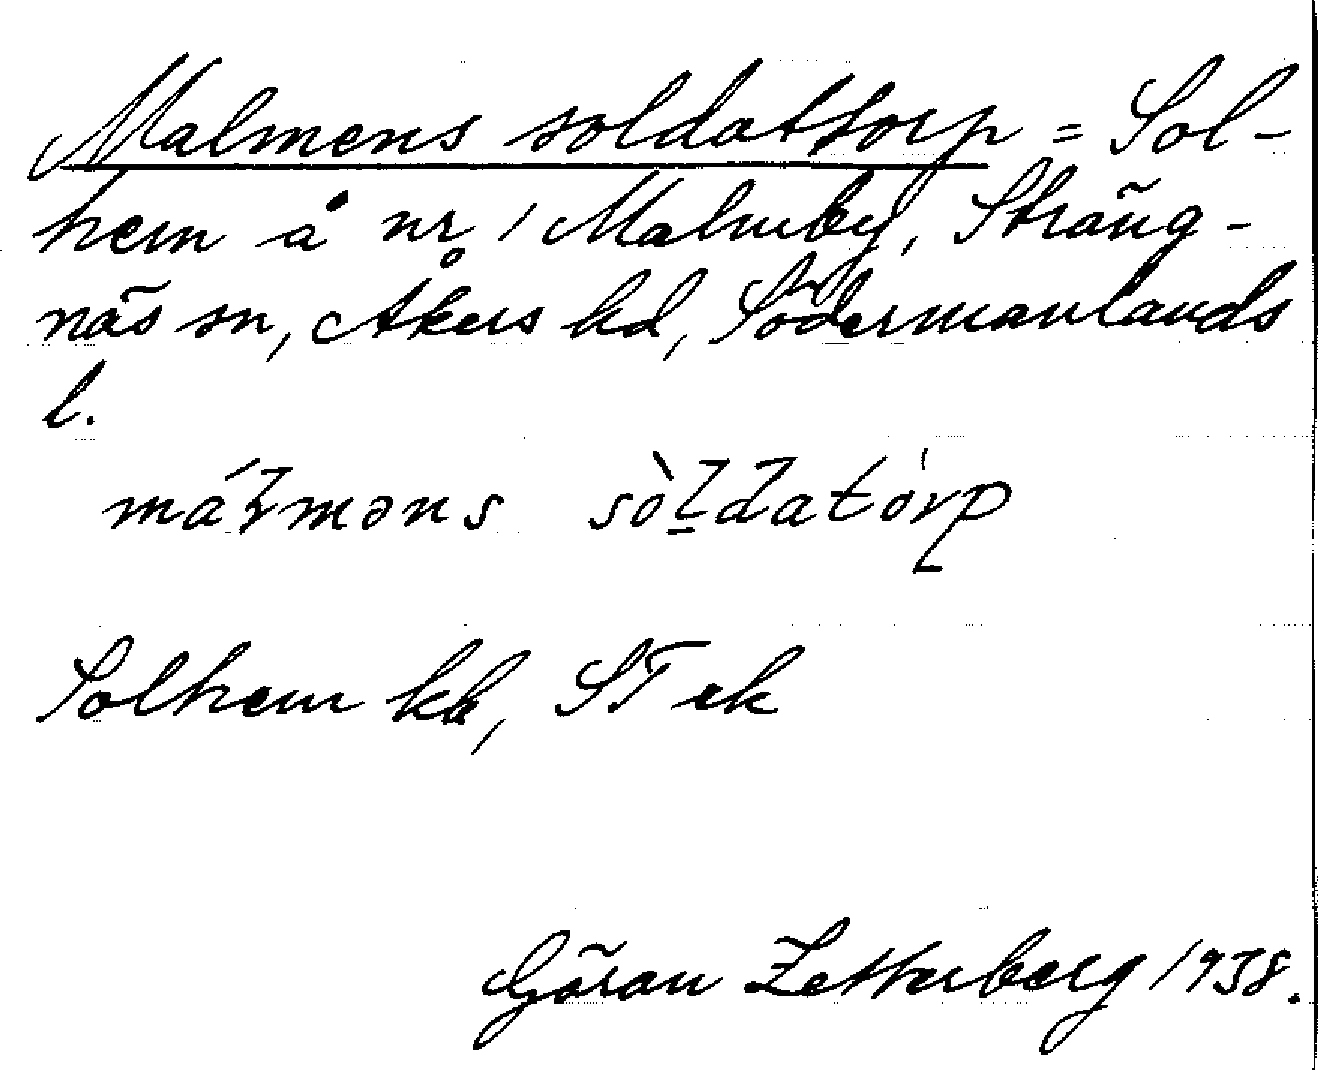 Malmens soldattorp = Sol-
hem å nr 1 Malmby, Sträng-
näs sn, Åkers hd, Södermanlands
l.
máɫməns sòḷdatórp
Solhem kb, ST ek
Göran Zetterberg 1938.